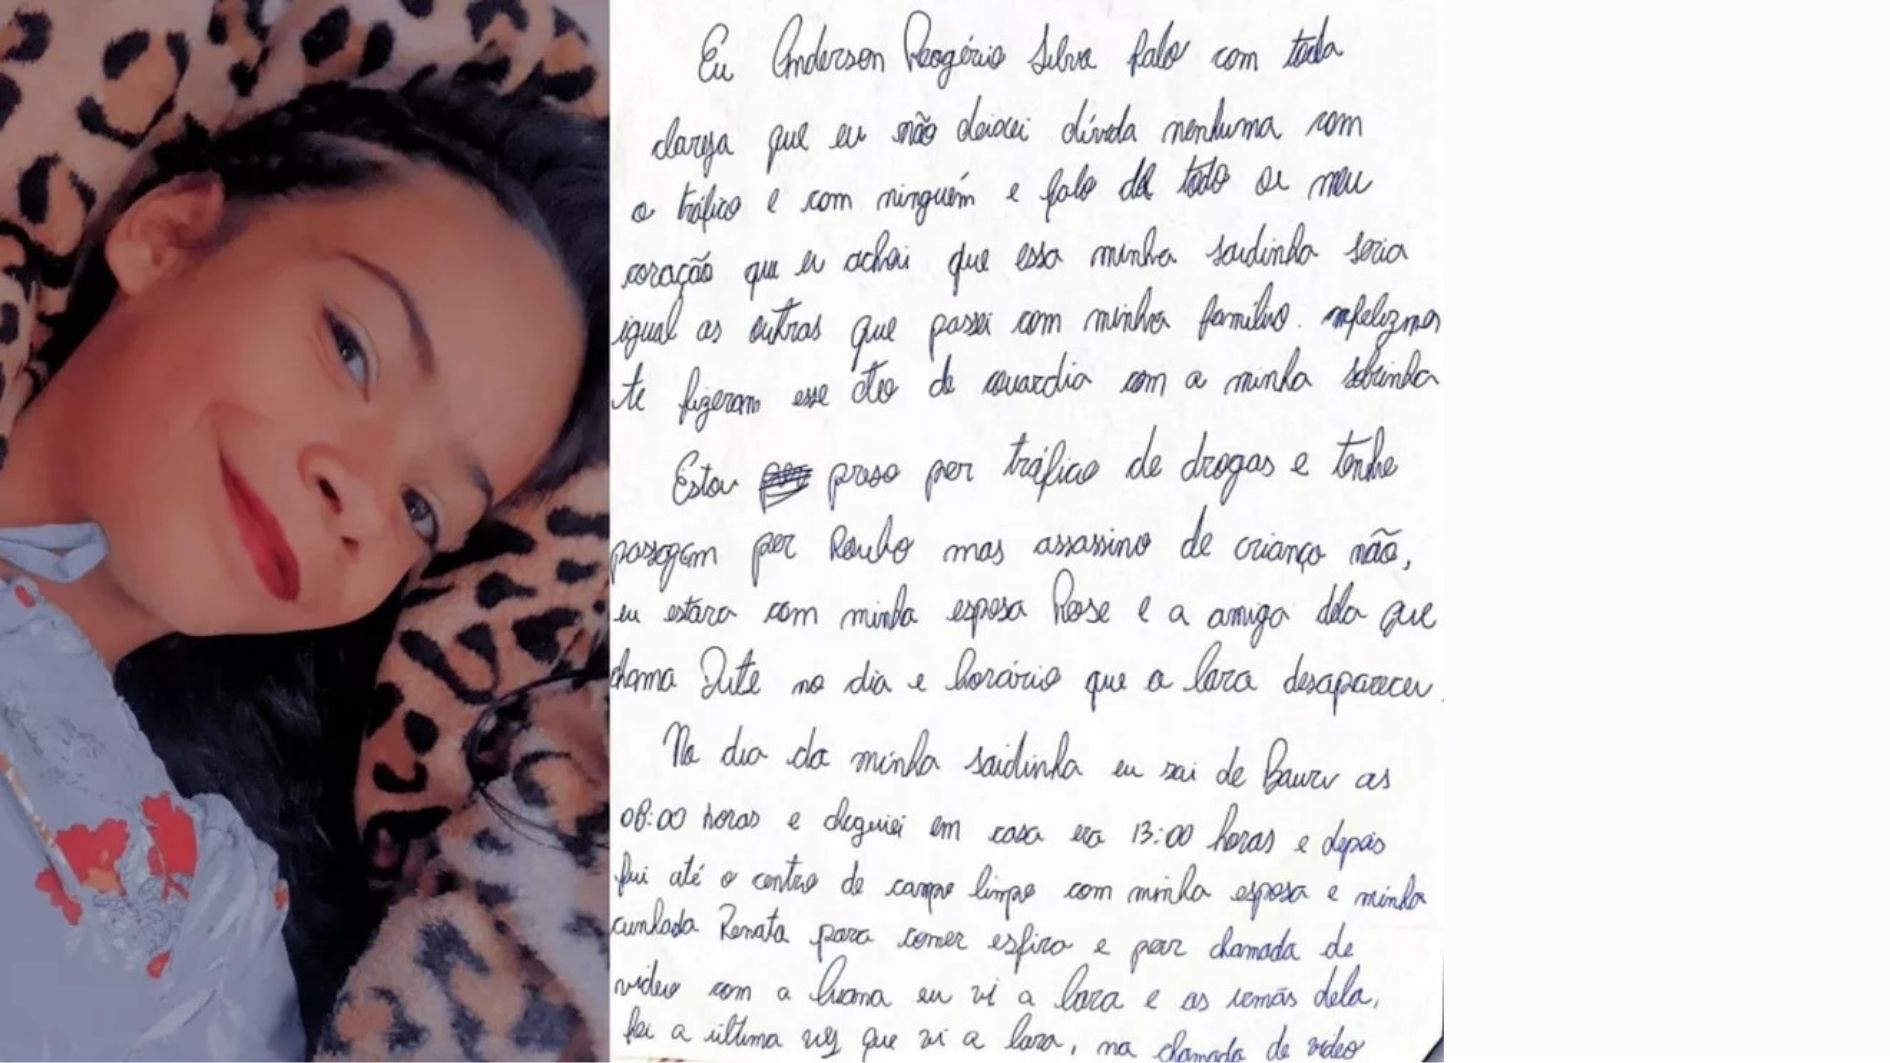 Eu Anderson Rogério Silva falo com toda
clareza que eu não deixei dívida nenhuma com
o tráfico e com ninguém e falo de todo os meu
coração que eu achei que essa minha saidinha seria
igual as outras que passei com minha família. infelizmen
te fizeram esse ato de covardia com a minha sobrinha
Estou preso por tráfico de drogas e tenho
passagem por Roubo mas assassino de criança não,
eu estava com minha esposa Rose e a amiga dela que
chama Jute no dia e horário que a lara desapareceu.
No dia da minha saidinha eu sai de Bauru as
08:00 horas e cheguei em casa era 13:00 horas e depois
fui até o centro de campo limpo com minha esposa e minha
cunhada Renata para comer esfira e por chamada de
video com a luana eu vi a lara e as irmãs dela,
foi a última vez que vi a lara, na chamada de video